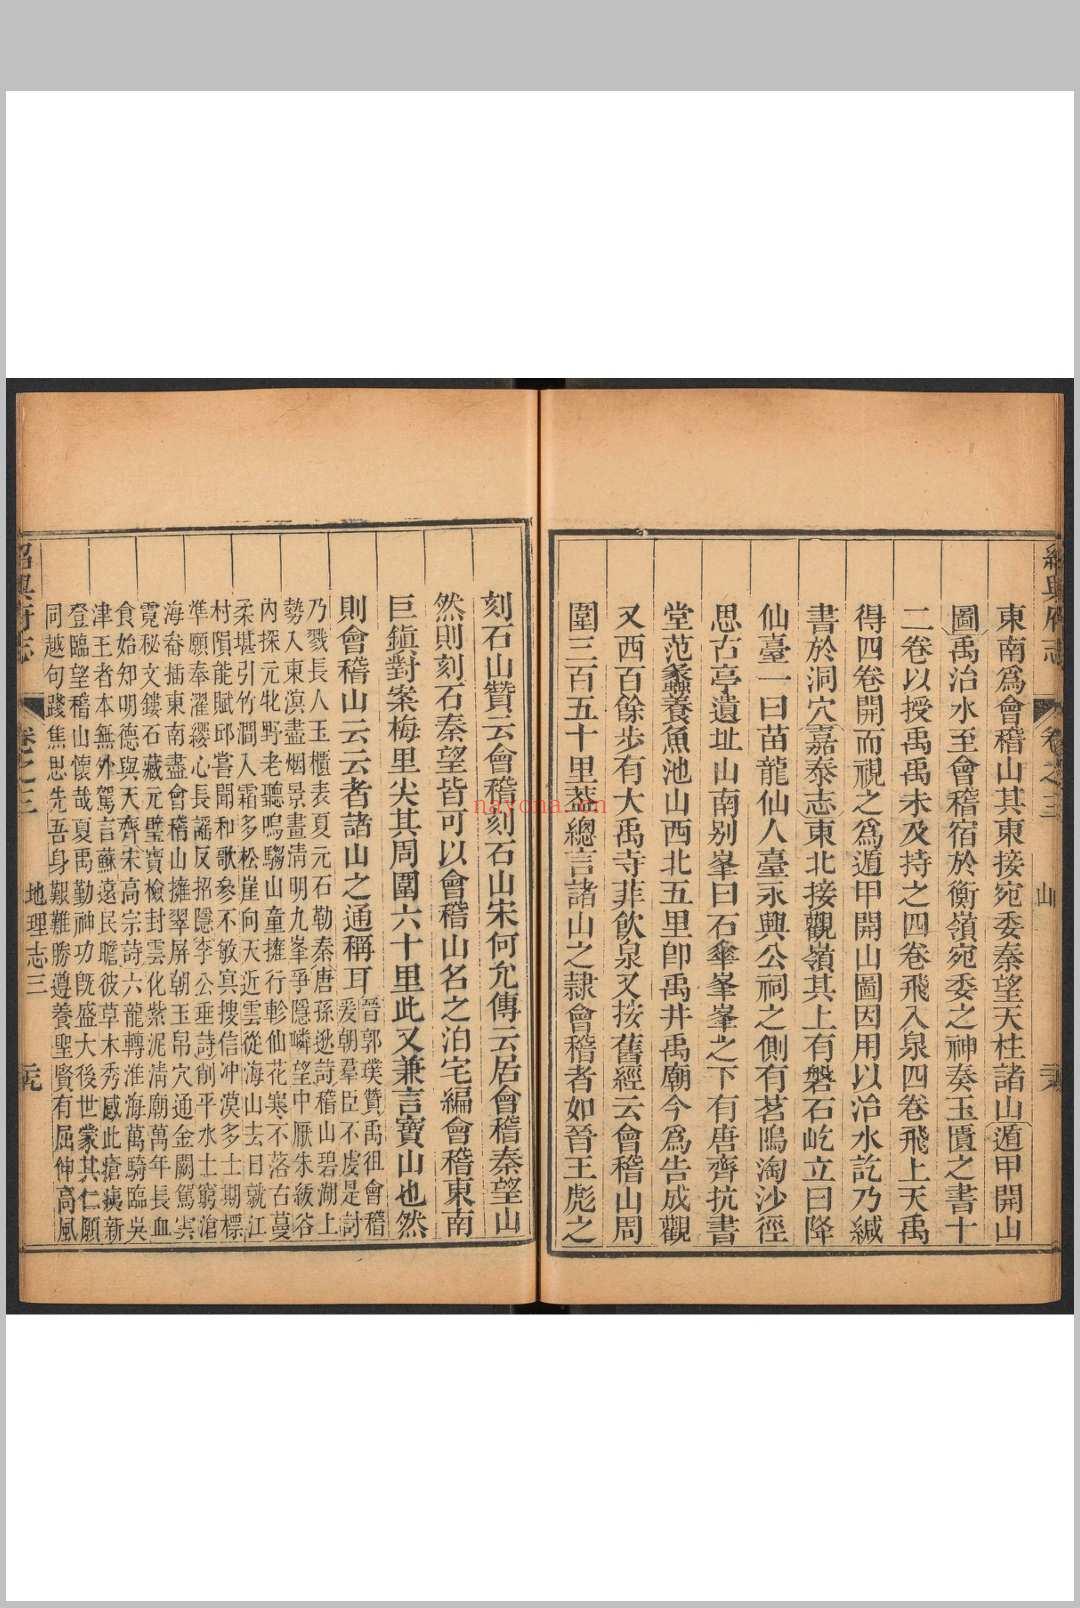 紹興府志
卷之三
山
東南爲會稽山其東接宛委秦望天柱諸山遁甲開山
圖禹治水至會稽宿於衡嶺宛委之神奏玉匱之書十
二卷以授禹禹未及持之四卷飛入泉四卷飛上天禹
得四卷開而視之爲遁甲開山圖因用以治水訖乃緘
書於洞穴嘉泰志東北接觀嶺其上有磐石屹立曰降
仙臺一曰苗龍仙人臺永興公祠之側有茗塢淘沙徑
思古亭遺址山南别峯曰石傘峯峯之下有唐齊抗書
堂范蠡養魚池山西北五里卽禹井禹廟今爲告成觀
又西百餘步有大禹寺菲飲泉又按舊經云會稽山周
圍三百五十里葢總言諸山之隷會稽者如晉王彪之
刻石山贊云會稽刻石山宋何允傳云居會稽秦望山
然則刻石秦望皆可以會稽山名之泊宅編會稽東南
巨鎮對案梅里尖其周圍六十里此又兼言寶山也然
則會稽山云云者諸山之通稱耳
晉郭璞贊禹徂會稽
爰朝羣臣不虔是討
乃戮長人玉櫃表夏元石勒秦唐孫逖詩稽山碧湖上
勢入東溟盡烟景晝淸明九峯爭隱嶙望中厭朱紱谷
內探元牝野老聽鳴騶山童擁行軫仙花寒不落古蔓
柔堪引竹澗入霜多松崖向天近雲從海山去日就江
村隕能賦邱嘗聞和歌參不敏㝠搜信冲漠多士期標
準願奉濯纓心長謡反招隱李公垂詩削平水土窮滄
海畚揷東南盡會稽山擁翠屏朝玉帛穴通金闕駕雲
霓秘文鏤石藏元璧寶檢封雲化紫泥淸廟萬年長血
食始知明德與天齊宋高宗詩六龍轉淮海萬騎臨吳
津王者本無外駕言蘇遠民瞻彼草木秀感此瘡痍新
登臨望稽山懷哉夏禹勤神功旣盛大後世蒙其仁願
同越句踐焦思先吾身艱難勝遵養聖賢有屈伸高風
紹興府志
卷之三
地理志三